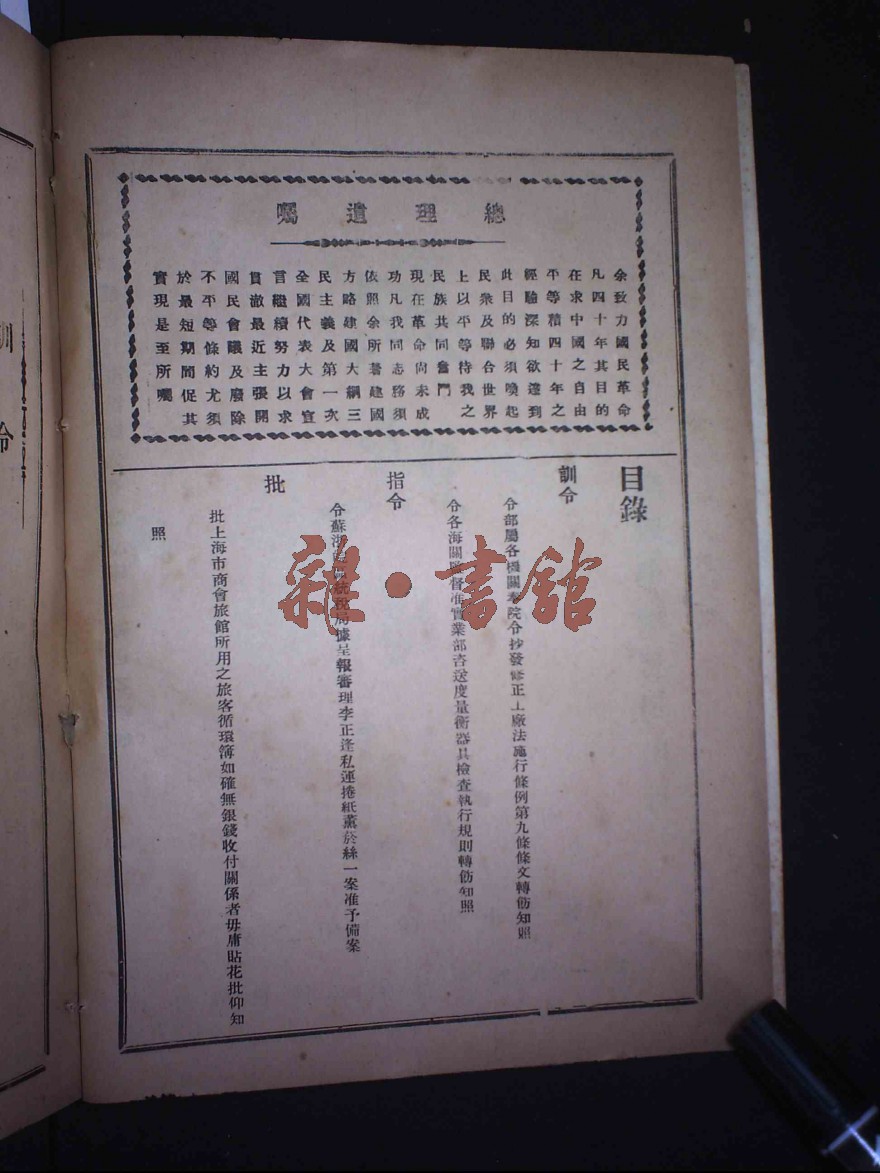 總理遺囑
余致力國民革命
凡四十年其目的
在求中國之自由
平等積四十年之
經驗深知欲達到
此目的必須喚起
民衆及聯合世界
上以平等待我之
民族共同奮鬥
現在革命尚未成
功凡我同志務須
依照余所著建國
方略建國大綱三
民主義及第一次
全國代表大會宣
言繼續努力以求
貫澈最近主張開
國民會議及廢除
不平等條約尤須
於最短期間促其
實現是至所囑
目錄
訓令
令部屬各機關奉院令抄發修正工廠法施行條例第九條條文轉飭知照
令各海關監督准實業部咨送度量衡器具檢查執行規則轉飭知照
指令
令蘇浙皖統稅局據呈報審理李正逢私運捲紙薰菸絲一案准予備案
批
批上海市商會旅館所用之旅客循環簿如確無銀錢收付關係者毋庸貼花批仰知
照
雜·書館
訓令